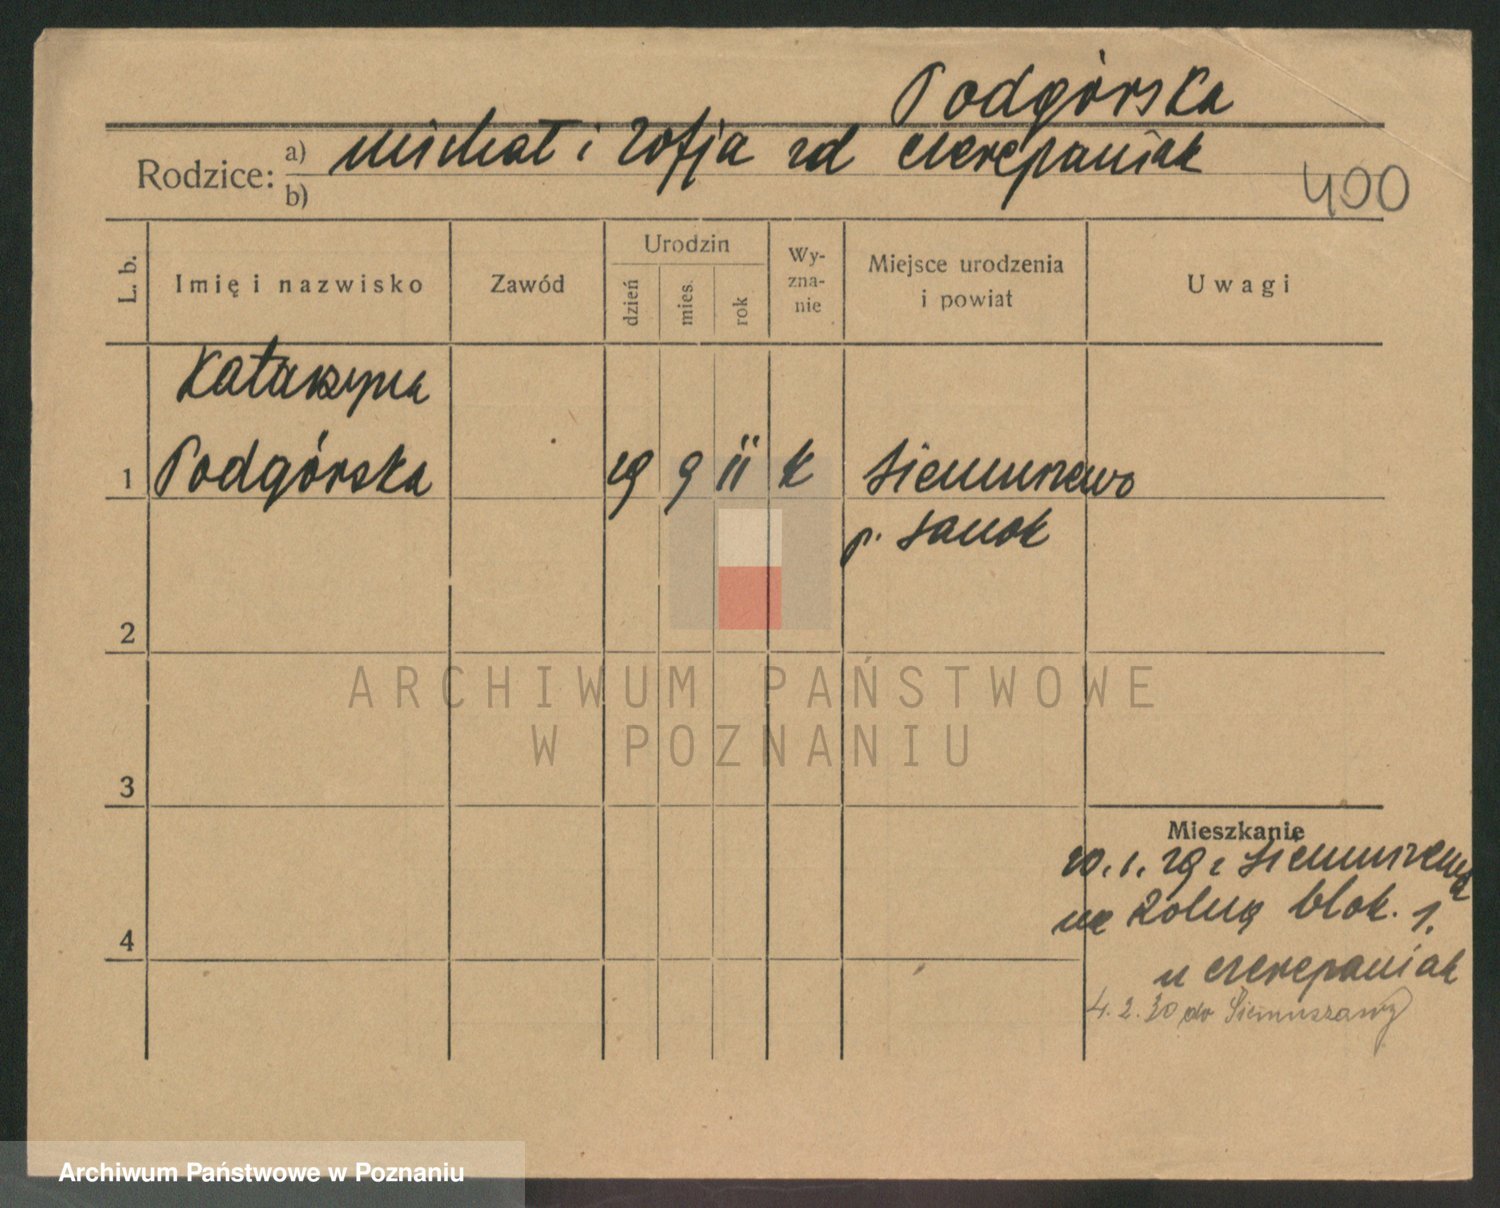 Podgórska
Rodzice: a) Michał i Zofja zd Czerepaniak
b)
400
L. b.
Imię i nazwisko
Zawód
Urodzin
dzień
mies.
rok
Wy-
zna-
nie
Miejsce urodzenia
i powiat
Uwagi
Katarzyna
1 Podgórska 29 9 11 k Siemuszewo
p. Sanok
2
ARCHIWUM PAŃSTWOWE
W POZNANIU
3
Mieszkanie
20. 1. 29 z Siemuszewa
na Zolną blok. 1.
4
u Czerepaniak
4. 2. 30 do Siemuszawy
Archiwum Państwowe w Poznaniu